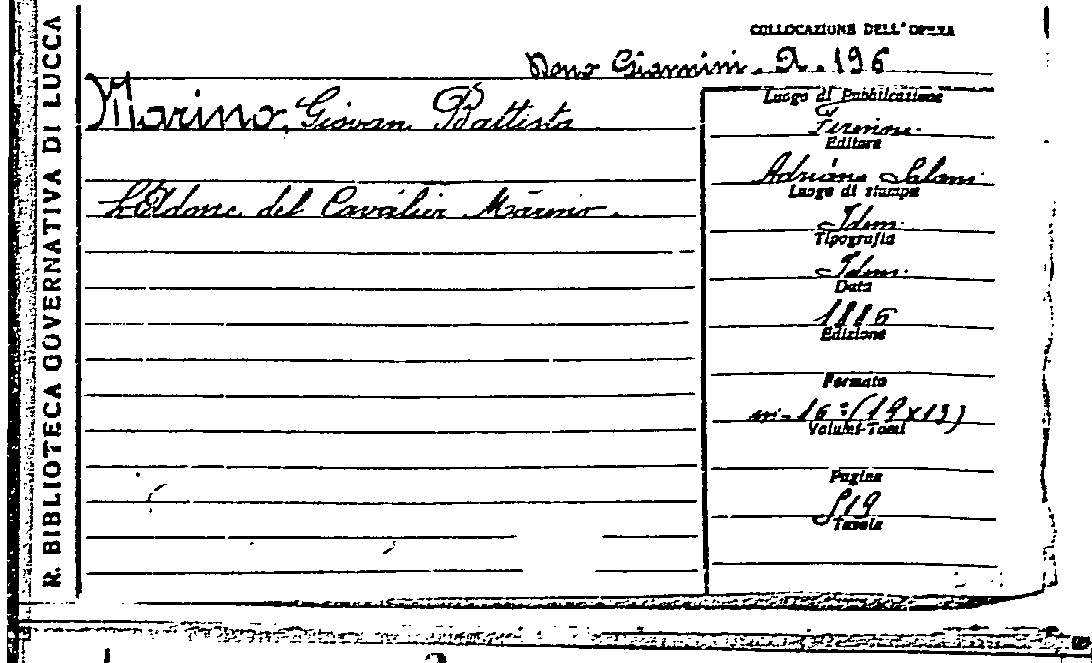 R. BIBLIOTECA GOVERNATIVA DI LUCCA
COLLOCAZIONE DELL'OPERA
Dono Giannini. A. 196
Marino, Giovan Battista
L'Adone del Cavalier Marino.
Luogo di Pubblicazione
Firenze.
Editore
Adriano Salani.
Luogo di stampa
Idem.
Tipografia
Idem.
Data
1886
Edizione
Formato
in-16º (19x13)
Volumi-Tomi
Pagine
519
Tavole